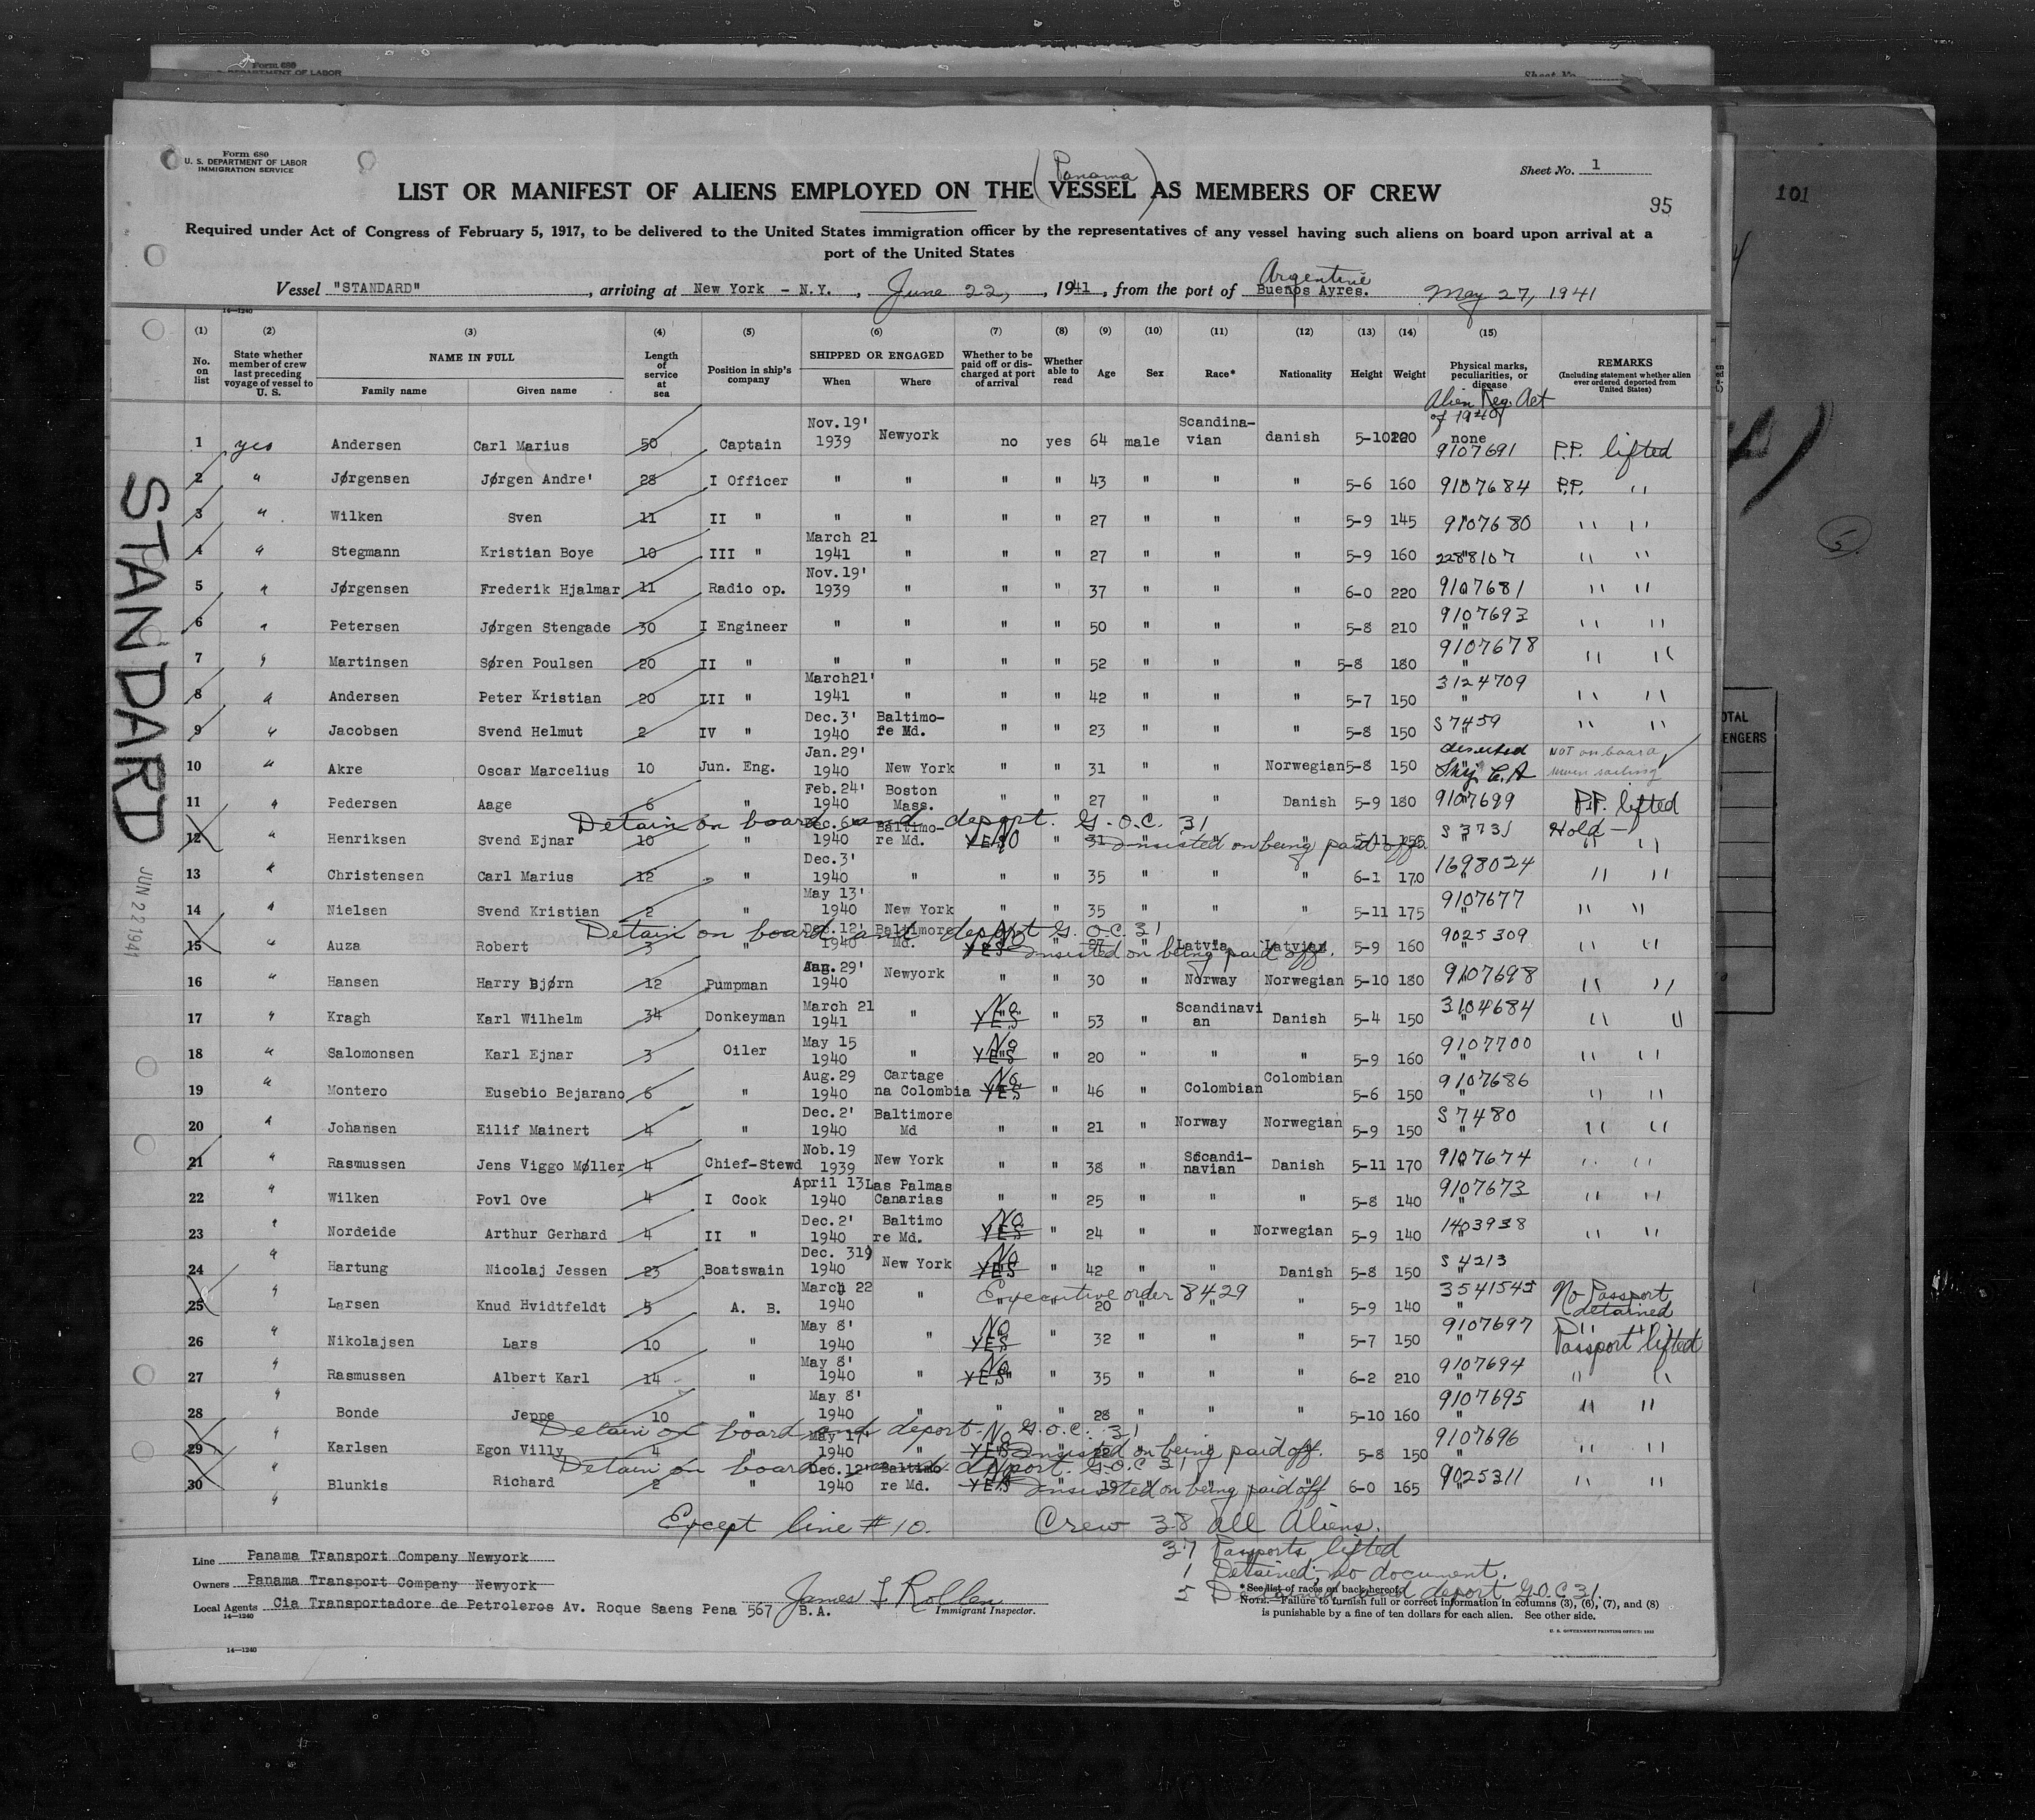 Form 680
U. S. DEPARTMENT OF LABOR
Sheet No.
Form 680
U. S. DEPARTMENT OF LABOR
IMMIGRATION SERVICE
Sheet No. 1
(Panama)
LIST OR MANIFEST OF ALIENS EMPLOYED ON THE VESSEL AS MEMBERS OF CREW
95
101
Required under Act of Congress of February 5, 1917, to be delivered to the United States immigration officer by the representatives of any vessel having such aliens on board upon arrival at a
port of the United States
Argentine
Vessel "STANDARD", arriving at New York - N.Y., June 22, 1941, from the port of Buenos Ayres. May 27, 1941
14—1240
(1) (2) (3) (4) (5) (6) (7) (8) (9) (10) (11) (12) (13) (14) (15)
No. on list | State whether member of crew last preceding voyage of vessel to U. S. | NAME IN FULL Family name Given name | Length of service at sea | Position in ship's company | SHIPPED OR ENGAGED When Where | Whether to be paid off or discharged at port of arrival | Whether able to read | Age | Sex | Race* | Nationality | Height | Weight | Physical marks, peculiarities, or disease | REMARKS (Including statement whether alien ever ordered deported from United States)
Alien Reg. Act of 1940
1 yes Andersen Carl Marius 50 Captain Nov.19' 1939 Newyork no yes 64 male Scandinavian danish 5-10 220 none 9107691 P.P. lifted
2 " Jørgensen Jørgen Andre' 28 I Officer " " " " 43 " " " 5-6 160 9107684 P.P. "
3 " Wilken Sven 11 II " " " " " 27 " " " 5-9 145 9107680 " "
4 " Stegmann Kristian Boye 10 III " March 21 1941 " " " 27 " " " 5-9 160 2288107 " "
5 " Jørgensen Frederik Hjalmar 11 Radio op. Nov.19' 1939 " " " 37 " " " 6-0 220 9107681 " "
6 " Petersen Jørgen Stengade 30 I Engineer " " " " 50 " " " 5-8 210 9107693 " "
7 " Martinsen Søren Poulsen 20 II " " " " " 52 " " " 5-8 180 9107678 " "
8 " Andersen Peter Kristian 20 III " March21' 1941 " " " 42 " " " 5-7 150 3124709 " "
9 " Jacobsen Svend Helmut 2 IV " Dec.3' 1940 Baltimore Md. " " 23 " " " 5-8 150 S 7459 " "
10 " Akre Oscar Marcelius 10 Jun. Eng. Jan.29' 1940 New York " " 31 " " Norwegian 5-8 150 deserted NOT on board when sailing
11 " Pedersen Aage 6 " Feb.24' 1940 Boston Mass. " " 27 " " Danish 5-9 180 9107699 P.P. lifted
Detain on board and deport. G.O.C. 31
12 " Henriksen Svend Ejnar 10 " Dec.6 1940 Baltimore Md. YES NO " 31 " " " 5-11 S 3731 Hold - " "
Insisted on being paid off.
13 " Christensen Carl Marius 12 " Dec.3' 1940 " " " 35 " " " 6-1 170 1698024 " "
14 " Nielsen Svend Kristian 2 " May 13' 1940 New York " " 35 " " " 5-11 175 9107677 " "
Detain on board and deport G.O.C. 31
15 " Auza Robert 3 " Dec.12' 1940 Baltimore Md. YES No " 27 " Latvia Latvian 5-9 160 9025309 " "
Insisted on being paid off.
16 " Hansen Harry Bjørn 12 Pumpman 29' 1940 Newyork " " 30 " Norway Norwegian 5-10 180 9107698 " "
17 " Kragh Karl Wilhelm 34 Donkeyman March 21 1941 " YES No " 53 " Scandinavian Danish 5-4 150 3104684 " "
18 " Salomonsen Karl Ejnar 3 Oiler May 15 1940 " YES No " 20 " " " 5-9 160 9107700 " "
19 " Montero Eusebio Bejarano 6 " Aug.29 1940 Cartagena Colombia YES No " 46 " Colombian Colombian 5-6 150 9107686 " "
20 " Johansen Eilif Mainert 4 " Dec.2' 1940 Baltimore Md " " 21 " Norway Norwegian 5-9 150 S 7480 " "
21 " Rasmussen Jens Viggo Møller 4 Chief-Stewd Nob.19 1939 New York " " 38 " Scandinavian Danish 5-11 170 9107674 " "
22 " Wilken Povl Ove 4 I Cook April 13 1940 Las Palmas Canarias " " 25 " " " 5-8 140 9107673 " "
23 " Nordeide Arthur Gerhard 4 II " Dec.2' 1940 Baltimore Md. YES No " 24 " " Norwegian 5-9 140 1403938 " "
24 " Hartung Nicolaj Jessen 23 Boatswain Dec. 31 1940 New York YES No " 42 " " Danish 5-8 150 S 4213
25 " Larsen Knud Hvidtfeldt 5 A. B. March 22 1940 " Executive order 8429 " 20 " " 5-9 140 3541545 No Passport detained
26 " Nikolajsen Lars 10 " May 8' 1940 " YES No " 32 " " " 5-7 150 9107697 Passport lifted
27 " Rasmussen Albert Karl 14 " May 8' 1940 " YES No " 35 " " " 6-2 210 9107694 " "
28 " Bonde Jeppe 10 " May 8' 1940 " " " 28 " " " 5-10 160 9107695 " "
Detain on board and deport. G.O.C. 31
29 " Karlsen Egon Villy 4 " May 17' 1940 " YES No " 22 " " " 5-8 150 9107696 " "
Insisted on being paid off.
Detain on board and deport. G.O.C 31
30 " Blunkis Richard 2 " Dec.12' 1940 Baltimore Md. YES No " 19 " " " 6-0 165 9025311 " "
Insisted on being paid off
Except line # 10. Crew 38 all Aliens.
37 Passports lifted
1 Detained, no document.
5 Detained and deport G.O.C 31.
Line Panama Transport Company Newyork
Owners Panama Transport Company Newyork
Local Agents Cia Transportadore de Petroleros Av. Roque Saens Pena 567 B.A.
James L Rollen
Immigrant Inspector.
14—1240
* See list of races on back hereof.
NOTE.—Failure to furnish full or correct information in columns (3), (6), (7), and (8)
is punishable by a fine of ten dollars for each alien. See other side.
U. S. GOVERNMENT PRINTING OFFICE
14—1240
STANDARD
JUN 22 1941